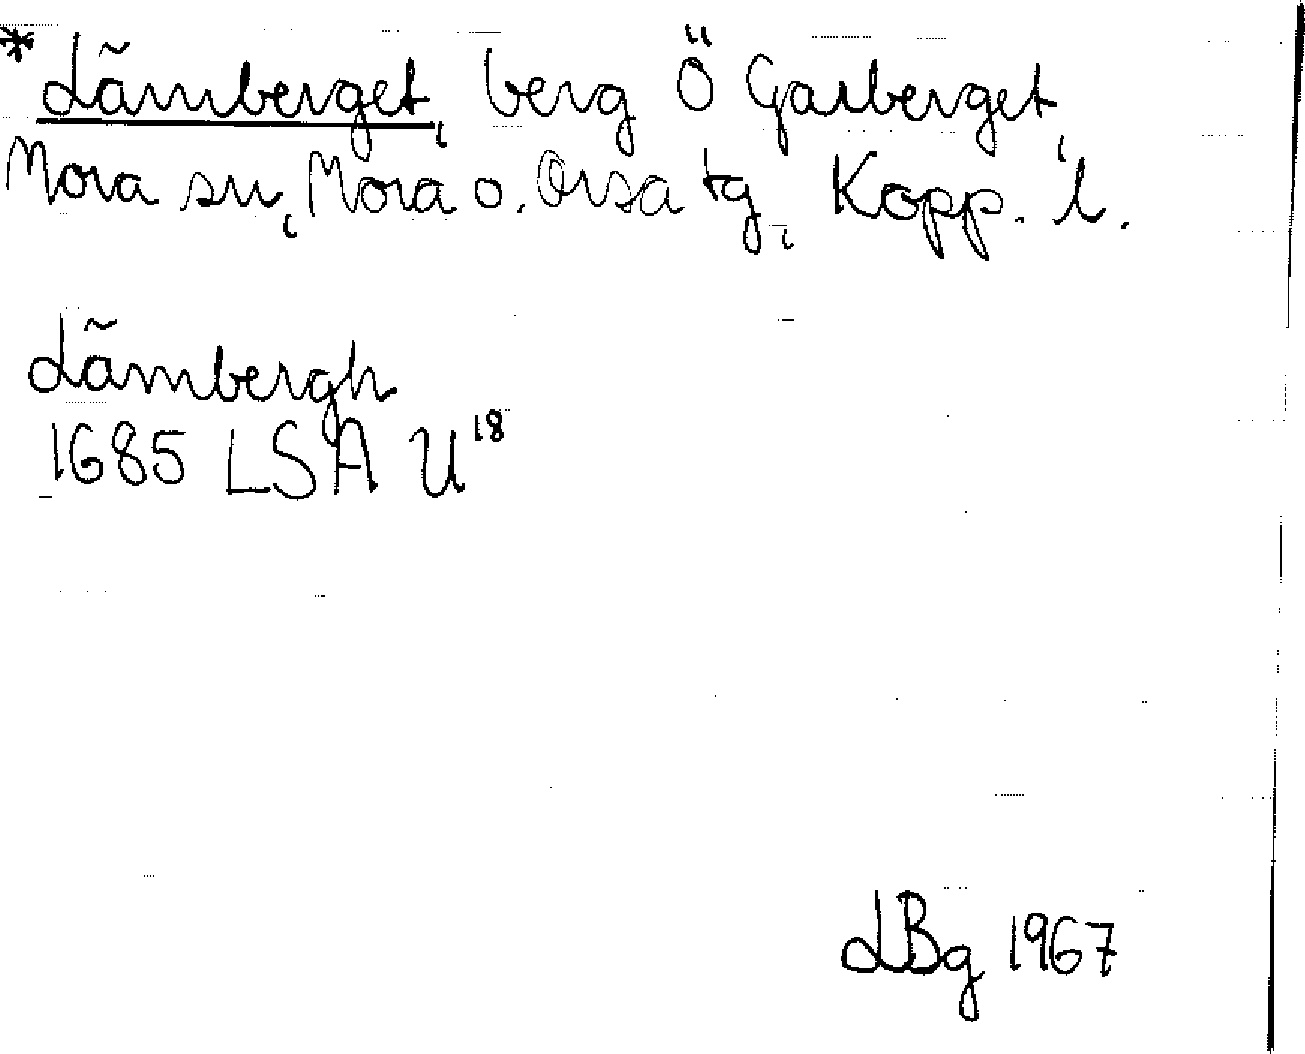 * Lãmberget, berg Ö Garberget,
Mora sn, Mora o. Orsa tg, Kopp. l.
Lãmbergh
1685 LSA U18
LBg 1967